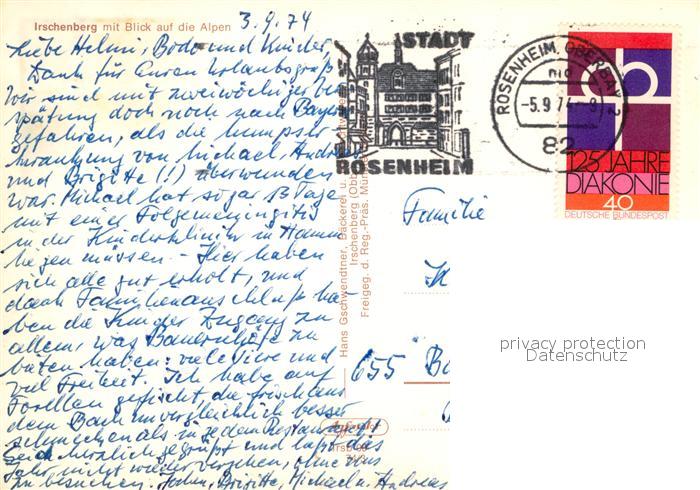 Irschenberg mit Blick auf die Alpen
3.9.74
Liebe Helmi, Bodo und Kinder,
Dank für Euren Urlaubsgruß
wir sind mit zweiwöchiger Ver
spätung doch noch nach Bayern
gefahren, als die Mumpser-
krankung von Michael, Andreas
und Brigitte (!) überwunden
war. Michael hat sogar 13 Tage
mit einer Folgemeningitis
in der Kinderklinik in Hamm
liegen müssen. – Hier haben
sich alle gut erholt, und
dank Familienanschluß ha-
ben die Kinder Zugang zu
allem, was Bauernhöfe zu
bieten haben: viele Tiere und
viel Freiheit. Ich habe auf
Forellen gefischt, die frisch aus
dem Bach unvergleichlich besser
schmecken als in jedem Restaurant
Seid herzlich gegrüßt und laßt das
Jahr nicht wieder vergehen, ohne uns
zu besuchen. John, Brigitte, Michael u. Andreas
Hans Gschwendtner, Bäckerei u.
Irschenberg (Obb
Freigeg. d. Reg.-Präs. Mün
STADT
ROSENHEIM
ROSENHEIM, OBERBAY 2
md
-5.9.74-9
82
125 JAHRE
DIAKONIE
40
DEUTSCHE BUNDESPOST
Familie
K
655 B
privacy protection
Datenschutz